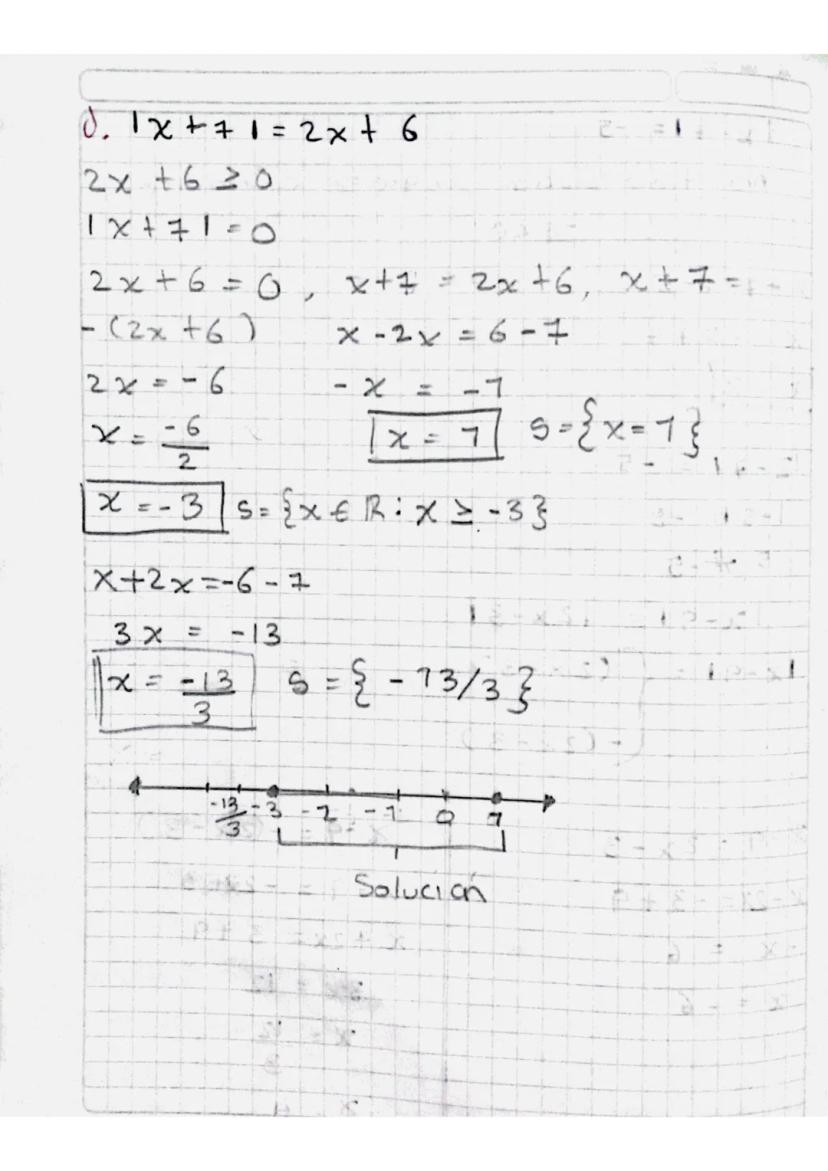 d. |x+7|=2x+6
2x+6≥0
|x+7|=0
2x+6=0, x+7=2x+6, x+7=-
-(2x+6) x-2x=6-7
2x=-6 -x=-1
x=-6/2 x=1 S={x=1}
x=-3 S={x∈R: x≥-3}
x+2x=-6-7
3x=-13
x=-13/3 S={-13/3}
-13/3 -3 -2 -1 0 1
Solución